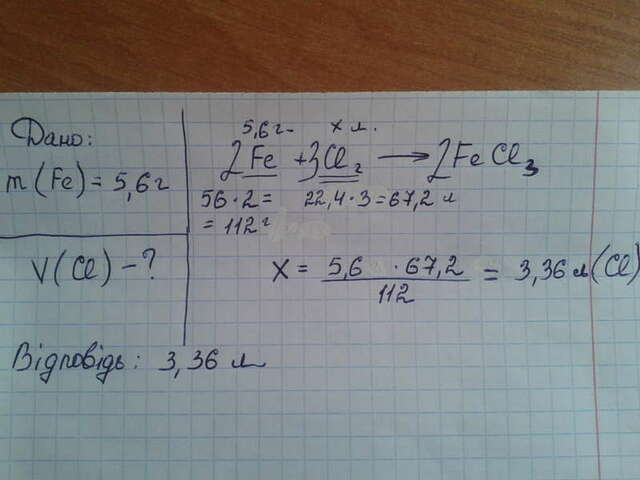 Дано:
m (Fe) = 5,6 г
V (Cl) - ?
5,6 г x л.
2Fe + 3Cl₂ → 2FeCl₃
56 · 2 = 22,4 · 3 = 67,2 л
= 112 г
X = 5,6 · 67,2 / 112 = 3,36 л (Cl)
Відповідь: 3,36 л